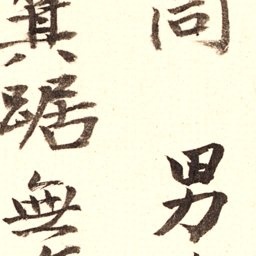 同男
箕踞無